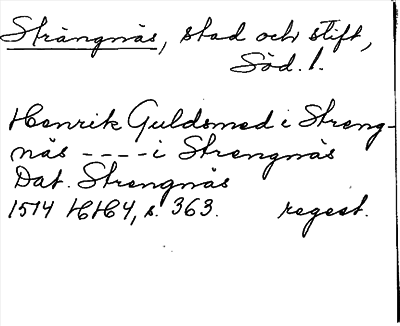 Strängnäs, stad och stift,
Söd. l.
Henrik Guldsmed i Streng-
näs ---- i Strengnäs
Dat. Strengnäs
1514 HH4, s. 363. regest.